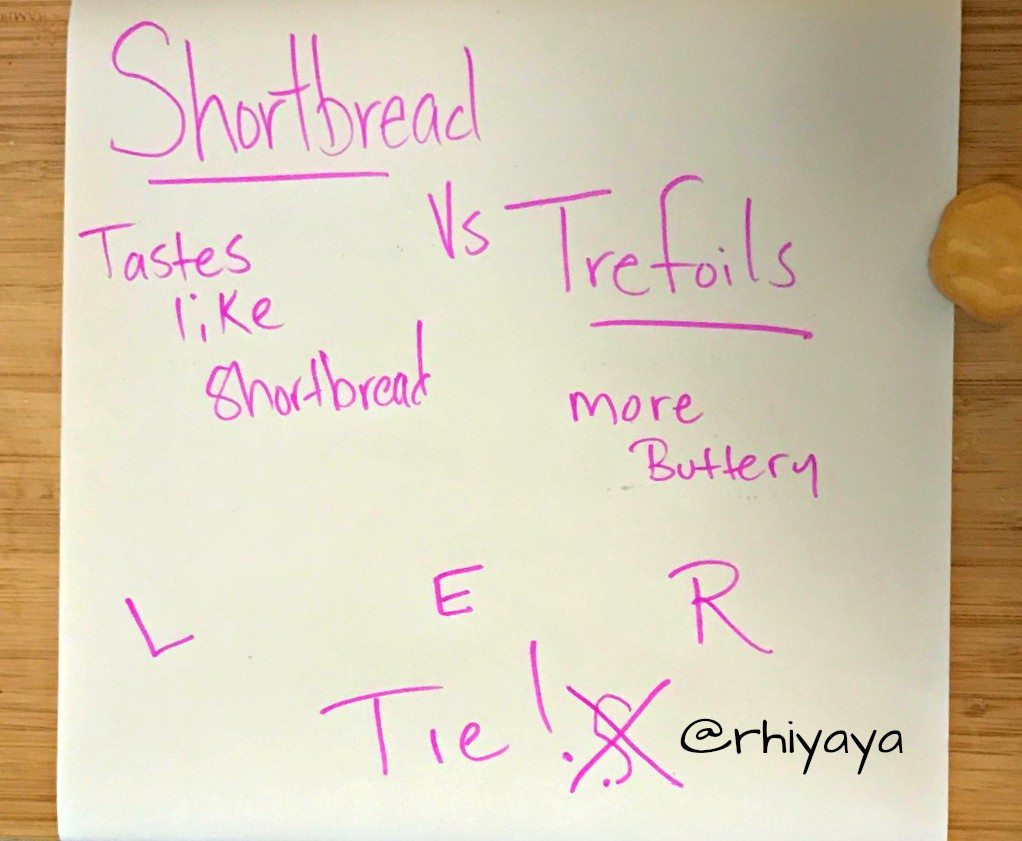 Shortbread
Vs
Trefoils
Tastes
like
Shortbread
more
Buttery
L E R
Tie!
@rhiyaya